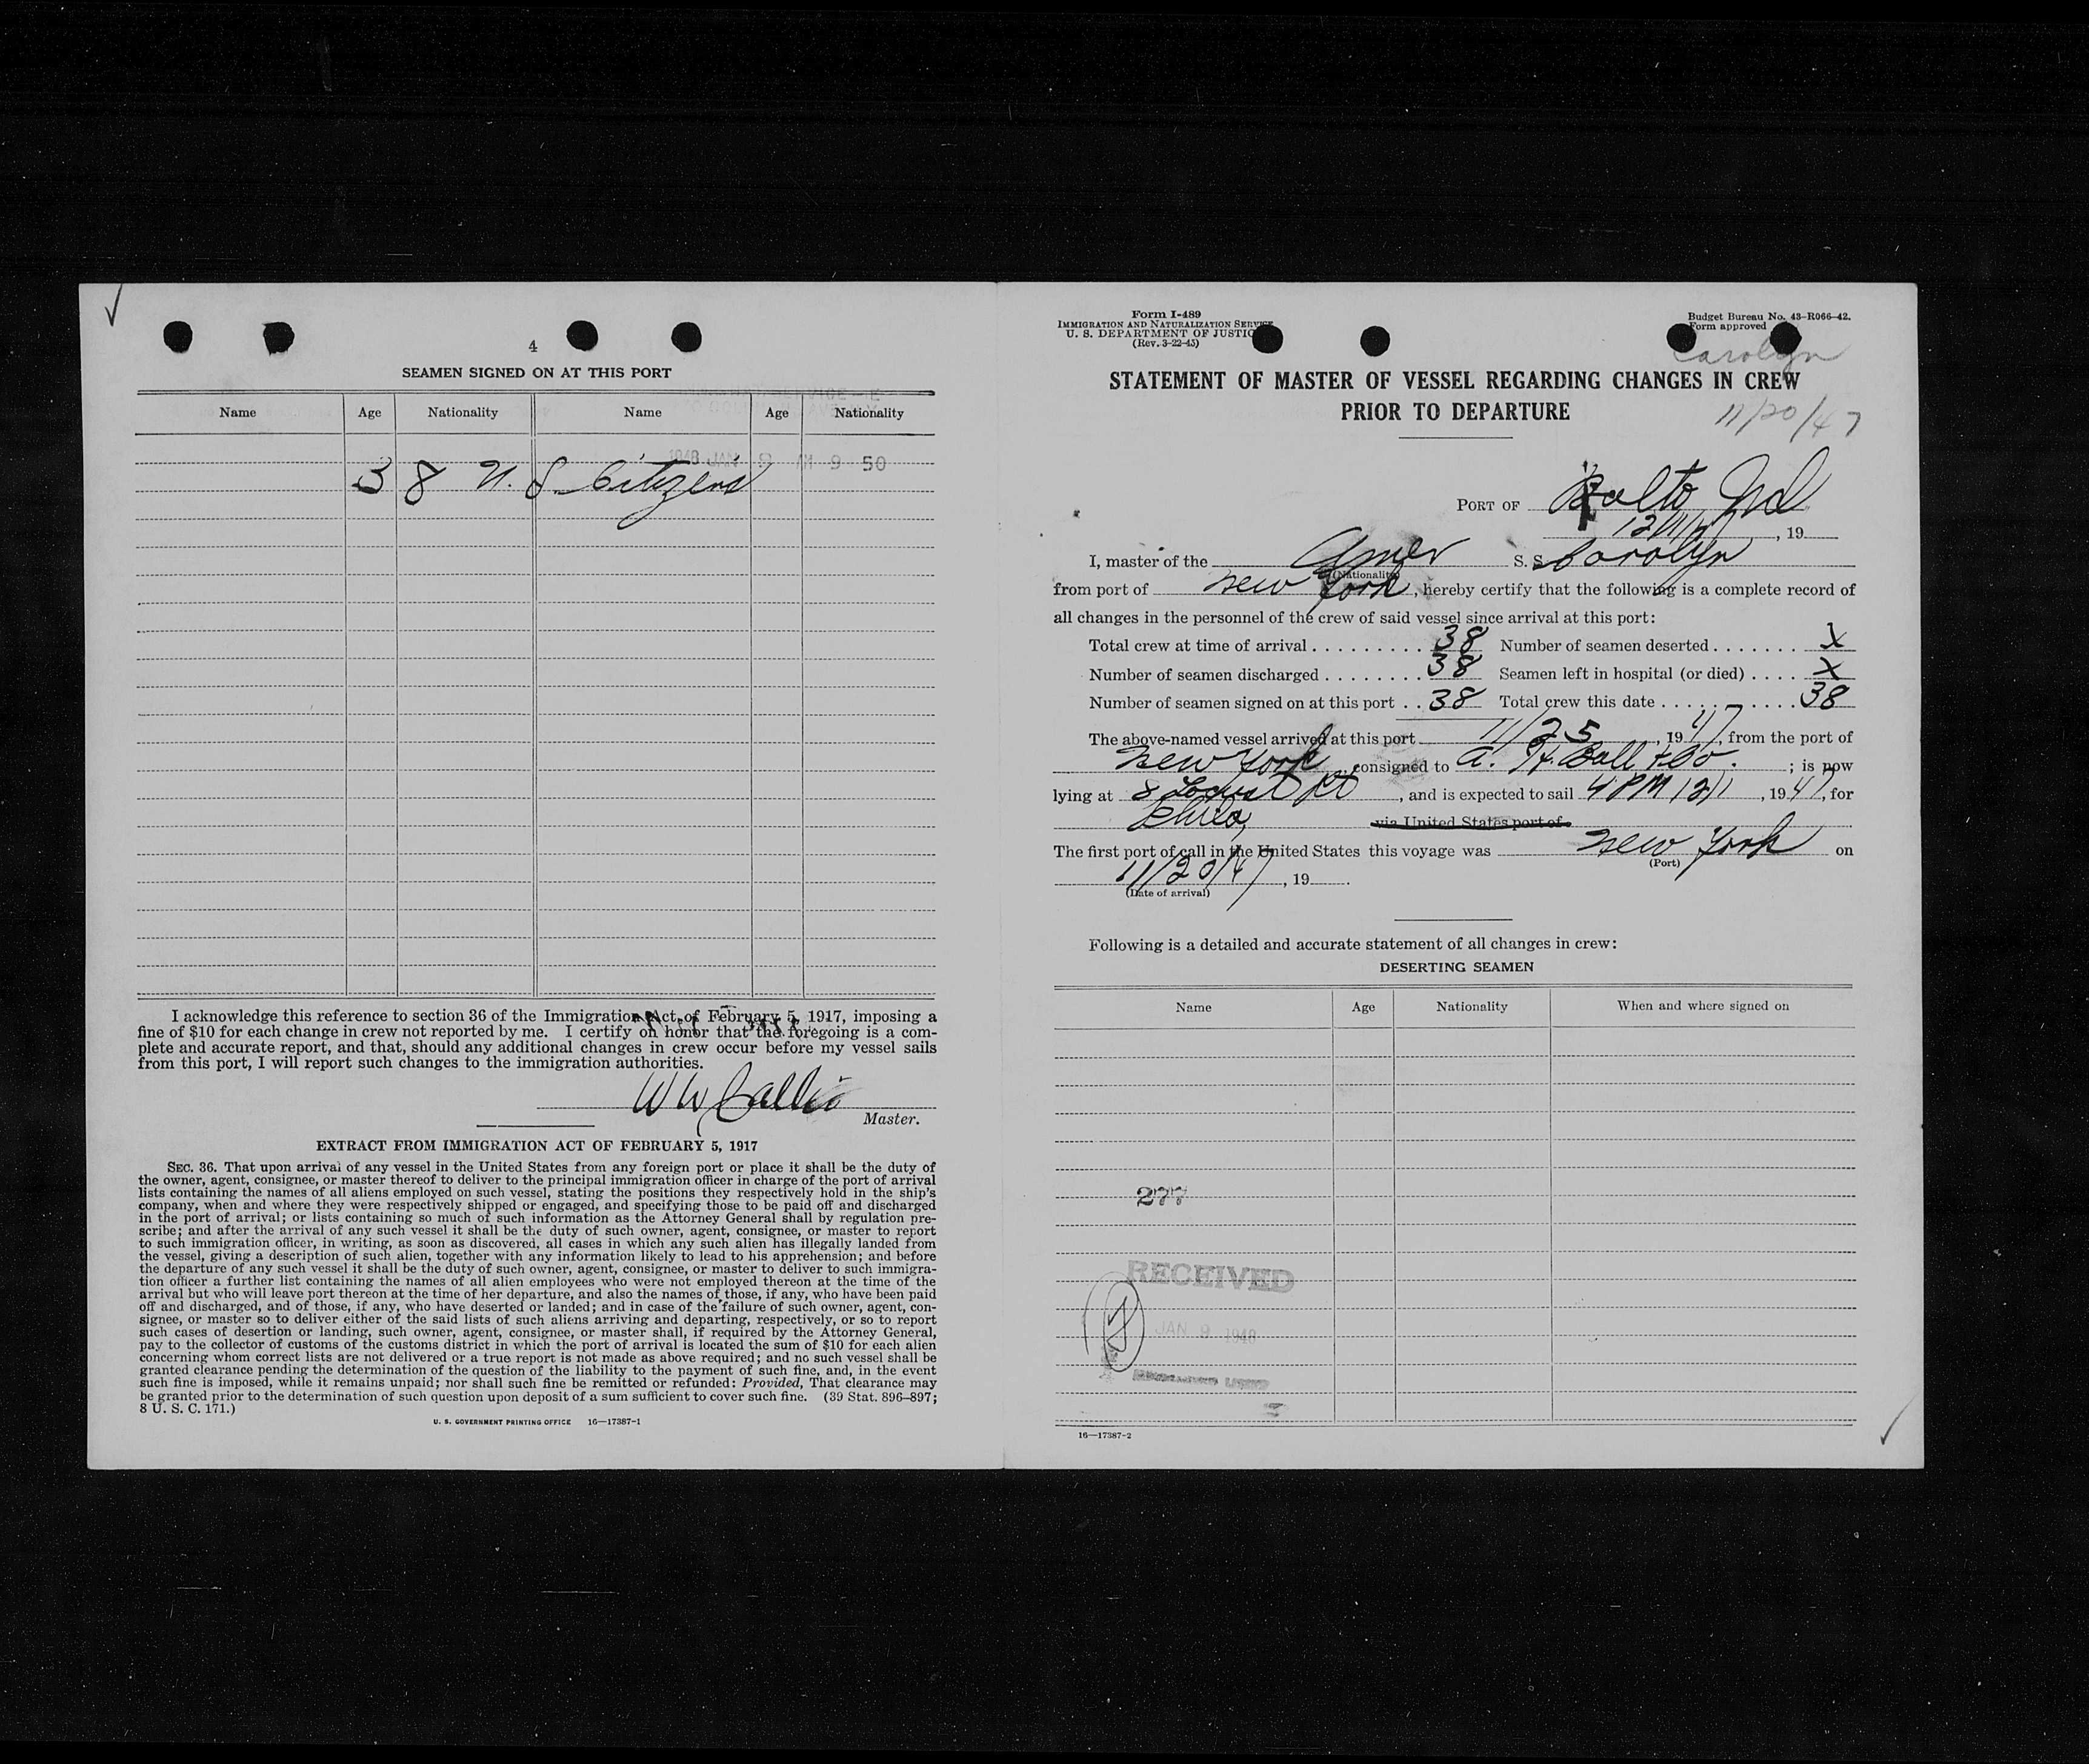 4
SEAMEN SIGNED ON AT THIS PORT
Name Age Nationality Name Age Nationality
1948 JAN 9 AM 9 50
38 U. S. Citizens
I acknowledge this reference to section 36 of the Immigration Act of February 5, 1917, imposing a
fine of $10 for each change in crew not reported by me. I certify on honor that the foregoing is a com-
plete and accurate report, and that, should any additional changes in crew occur before my vessel sails
from this port, I will report such changes to the immigration authorities.
W W
Master.
EXTRACT FROM IMMIGRATION ACT OF FEBRUARY 5, 1917
SEC. 36. That upon arrival of any vessel in the United States from any foreign port or place it shall be the duty of
the owner, agent, consignee, or master thereof to deliver to the principal immigration officer in charge of the port of arrival
lists containing the names of all aliens employed on such vessel, stating the positions they respectively hold in the ship's
company, when and where they were respectively shipped or engaged, and specifying those to be paid off and discharged
in the port of arrival; or lists containing so much of such information as the Attorney General shall by regulation pre-
scribe; and after the arrival of any such vessel it shall be the duty of such owner, agent, consignee, or master to report
to such immigration officer, in writing, as soon as discovered, all cases in which any such alien has illegally landed from
the vessel, giving a description of such alien, together with any information likely to lead to his apprehension; and before
the departure of any such vessel it shall be the duty of such owner, agent, consignee, or master to deliver to such immigra-
tion officer a further list containing the names of all alien employees who were not employed thereon at the time of the
arrival but who will leave port thereon at the time of her departure, and also the names of those, if any, who have been paid
off and discharged, and of those, if any, who have deserted or landed; and in case of the failure of such owner, agent, con-
signee, or master so to deliver either of the said lists of such aliens arriving and departing, respectively, or so to report
such cases of desertion or landing, such owner, agent, consignee, or master shall, if required by the Attorney General,
pay to the collector of customs of the customs district in which the port of arrival is located the sum of $10 for each alien
concerning whom correct lists are not delivered or a true report is not made as above required; and no such vessel shall be
granted clearance pending the determination of the question of the liability to the payment of such fine, and, in the event
such fine is imposed, while it remains unpaid; nor shall such fine be remitted or refunded: Provided, That clearance may
be granted prior to the determination of such question upon deposit of a sum sufficient to cover such fine. (39 Stat. 896–897;
8 U. S. C. 171.)
U. S. GOVERNMENT PRINTING OFFICE 16—17387-1
Form I-489
IMMIGRATION AND NATURALIZATION SERVICE
U. S. DEPARTMENT OF JUSTICE
(Rev. 3-22-45)
Budget Bureau No. 43-R066-42.
Form approved
Carolyn
STATEMENT OF MASTER OF VESSEL REGARDING CHANGES IN CREW
PRIOR TO DEPARTURE
11/20/47
PORT OF Balto Md
, 19
I, master of the Amer S. S. Carolyn
(Nationality)
from port of New York, hereby certify that the following is a complete record of
all changes in the personnel of the crew of said vessel since arrival at this port:
Total crew at time of arrival 38 Number of seamen deserted X
Number of seamen discharged 38 Seamen left in hospital (or died) X
Number of seamen signed on at this port 38 Total crew this date 38
The above-named vessel arrived at this port 11/25, 1947, from the port of
New York, consigned to A. H. Bull & Co. ; is now
lying at 8 Locust Pt, and is expected to sail 4 PM 12/1, 1947, for
Phila, via United States port of
The first port of call in the United States this voyage was New York on
(Port)
11/20/47, 19
(Date of arrival)
Following is a detailed and accurate statement of all changes in crew:
DESERTING SEAMEN
Name Age Nationality When and where signed on
277
RECEIVED
JAN 9 1948
16—17387-2